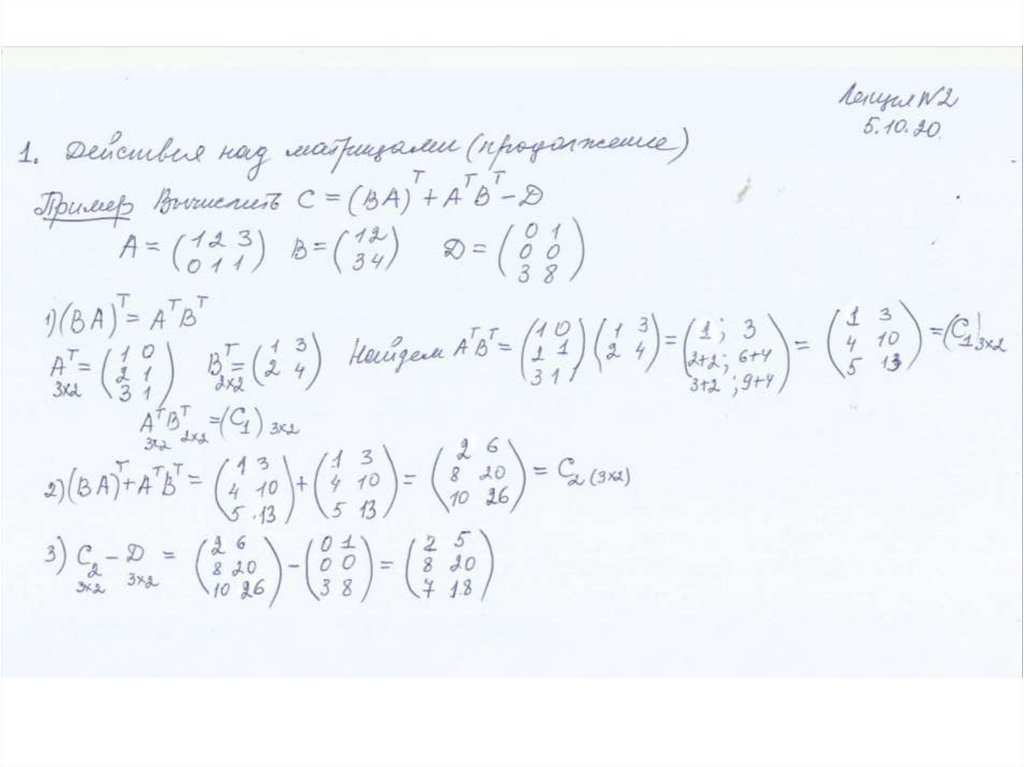 Лекция N2
5.10.20.
1. Действия над матрицами (продолжение)
Пример Вычислить C = (BA)^T + A^T B^T - D
A = (1 2 3; 0 1 1) B = (1 2; 3 4) D = (0 1; 0 0; 3 8)
1) (BA)^T = A^T B^T
A^T 3x2 = (1 0; 2 1; 3 1) B^T 2x2 = (1 3; 2 4) Найдем A^T B^T = (1 0; 2 1; 3 1) (1 3; 2 4) = (1; 3 2+2; 6+4 3+2; 9+4) = (1 3; 4 10; 5 13) = (C1) 3x2
A^T 3x2 B^T 2x2 = (C1) 3x2
2) (BA)^T + A^T B^T = (1 3; 4 10; 5 13) + (1 3; 4 10; 5 13) = (2 6; 8 20; 10 26) = C2 (3x2)
3) C2 3x2 - D 3x2 = (2 6; 8 20; 10 26) - (0 1; 0 0; 3 8) = (2 5; 8 20; 7 18)